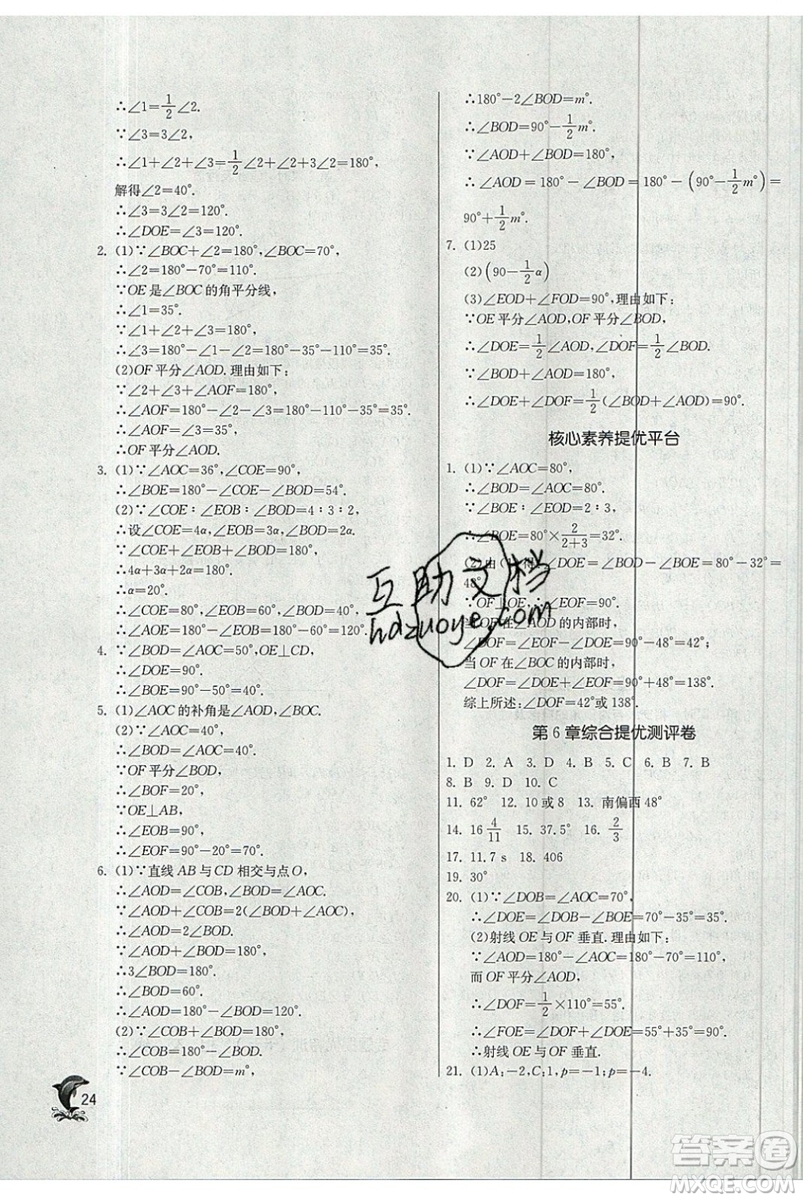 ∴∠1=1/2∠2.
∵∠3=3∠2,
∴∠1+∠2+∠3=1/2∠2+∠2+3∠2=180°,
解得∠2=40°.
∴∠3=3∠2=120°.
∴∠DOE=∠3=120°.
2. (1)∵∠BOC+∠2=180°,∠BOC=70°,
∴∠2=180°-70°=110°.
∵OE是∠BOC的角平分线,
∴∠1=35°.
∵∠1+∠2+∠3=180°,
∴∠3=180°-∠1-∠2=180°-35°-110°=35°.
(2)OF平分∠AOD.理由如下:
∵∠2+∠3+∠AOF=180°,
∴∠AOF=180°-∠2-∠3=180°-110°-35°=35°.
∴∠AOF=∠3=35°.
∴OF平分∠AOD.
3. (1)∵∠AOC=36°,∠COE=90°,
∴∠BOE=180°-∠AOC-∠COE=54°.
(2)∵∠COE∶∠EOB∶∠BOD=4∶3∶2,
∴设∠COE=4α,∠EOB=3α,∠BOD=2α.
∵∠COE+∠EOB+∠BOD=180°,
∴4α+3α+2α=180°.
∴α=20°.
∴∠COE=80°,∠EOB=60°,∠BOD=40°.
∴∠AOE=180°-∠EOB=180°-60°=120°.
4. (1)∵∠AOC=∠BOD=50°,OE⊥CD,
∴∠DOE=90°.
∴∠BOE=90°-50°=40°.
5. (1)∠AOC的补角是∠AOD,∠BOC.
(2)∵∠AOC=40°,
∴∠BOD=∠AOC=40°.
∵OF平分∠BOD,
∴∠BOF=20°.
∵OE⊥AB,
∴∠EOB=90°.
∴∠EOF=90°-20°=70°.
6. (1)∵直线AB与CD相交与点O,
∴∠AOD=∠COB,∠BOD=∠AOC.
∵∠AOD+∠COB=2(∠BOD+∠AOC),
∴∠AOD=2∠BOD.
∵∠AOD+∠BOD=180°,
∴3∠BOD=180°.
∴∠BOD=60°.
∴∠AOD=180°-∠BOD=120°.
(2)∵∠COB+∠BOD=180°,
∴∠COB=180°-∠BOD.
∵∠COB-∠BOD=m°,
24
∴180°-2∠BOD=m°.
∴∠BOD=90°-1/2m°.
∵∠AOD+∠BOD=180°,
∴∠AOD=180°-∠BOD=180°-(90°-1/2m°)=
90°+1/2m°.
7. (1)25
(2)(90-1/2α)
(3)∠EOD+∠FOD=90°,理由如下:
∵OE平分∠AOD,OF平分∠BOD,
∴∠DOE=1/2∠AOD,∠DOF=1/2∠BOD.
∵∠AOD+∠BOD=180°,
∴∠DOE+∠DOF=1/2(∠BOD+∠AOD)=90°.
核心素养提优平台
1. (1)∵∠AOC=80°,
∴∠BOD=∠AOC=80°.
∵∠BOE∶∠EOD=2∶3,
∴∠BOE=80°×2/(2+3)=32°.
(2)由(1)得∠DOE=∠BOD-∠BOE=80°-32°=
48°.
∵OF⊥OE,∴∠EOF=90°.
当OF在∠AOD的内部时,
∠DOF=∠EOF-∠DOE=90°-48°=42°;
当OF在∠BOC的内部时,
∠DOF=∠DOE+∠EOF=90°+48°=138°.
综上所述:∠DOF=42°或138°.
第6章综合提优测评卷
1. D 2. A 3. D 4. C 5. B 6. B 7. B
8. B 9. D 10. C
11. 62° 12. 10或8 13. 南偏西48°
14. 16 4/11 15. 37.5° 16. 2/3
17. 11.7 s 18. 406
19. 30°
20. (1)∵∠DOB=∠AOC=70°,
∴∠DOE=∠DOB-∠BOE=70°-35°=35°.
(2)射线OE与OF垂直.理由如下:
∵∠AOD=180°-∠AOC=180°-70°=110°,
而OF平分∠AOD,
∴∠DOF=1/2×110°=55°.
∴∠FOE=∠DOF+∠DOE=55°+35°=90°.
∴射线OE与OF垂直.
21. (1)A:-2,C:1,p=-1;p=-4.
互助文档
hdzuoye.com
答案圈
MXQE.COM